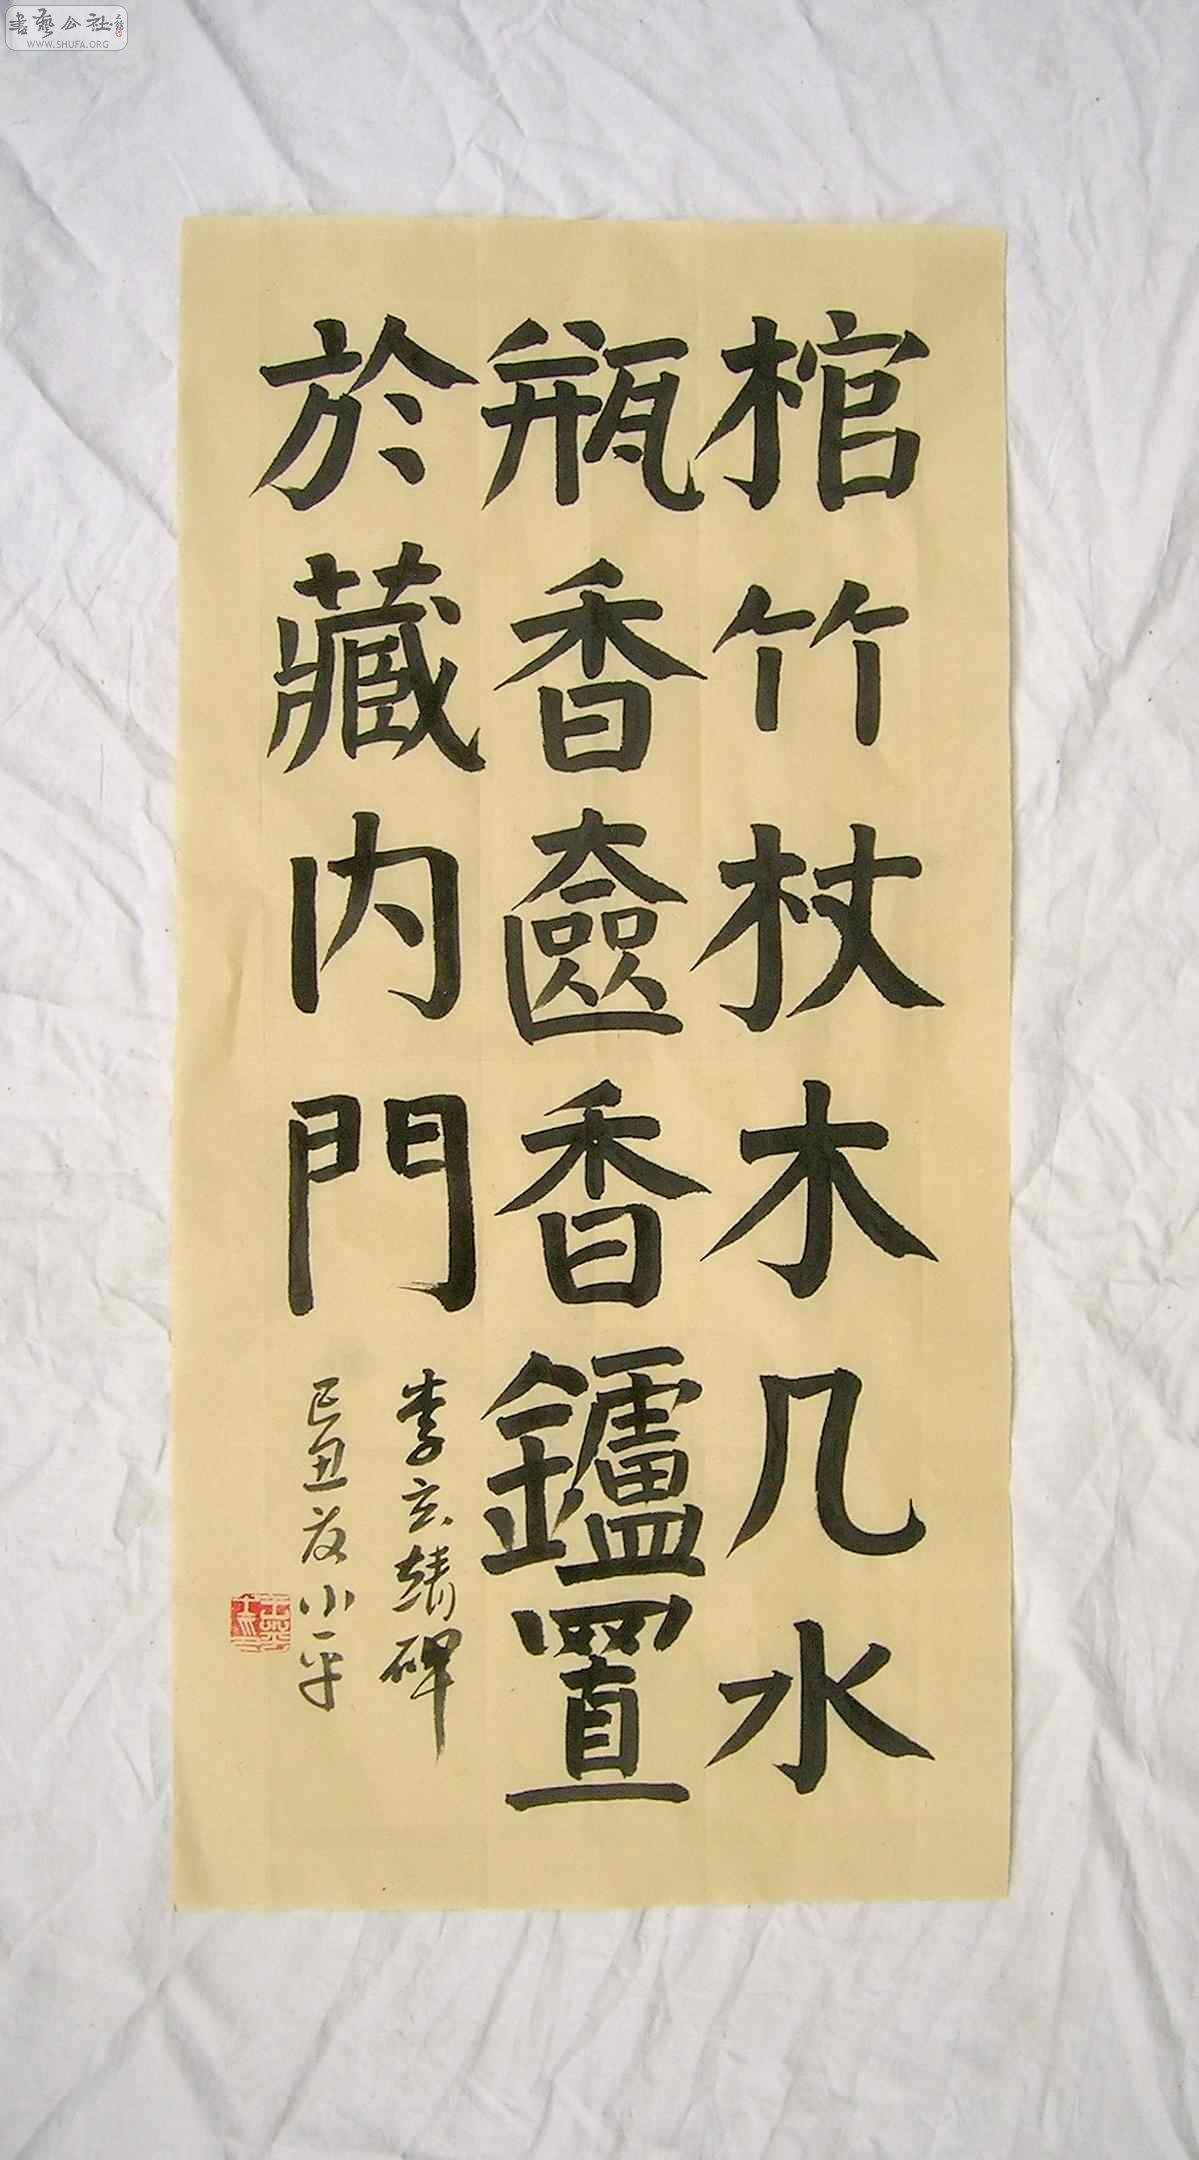 書藝公社
WWW.SHUFA.ORG
棺竹杖木几水
瓶香奩香鑪置
於藏内門
李玄靖碑
己丑友小平